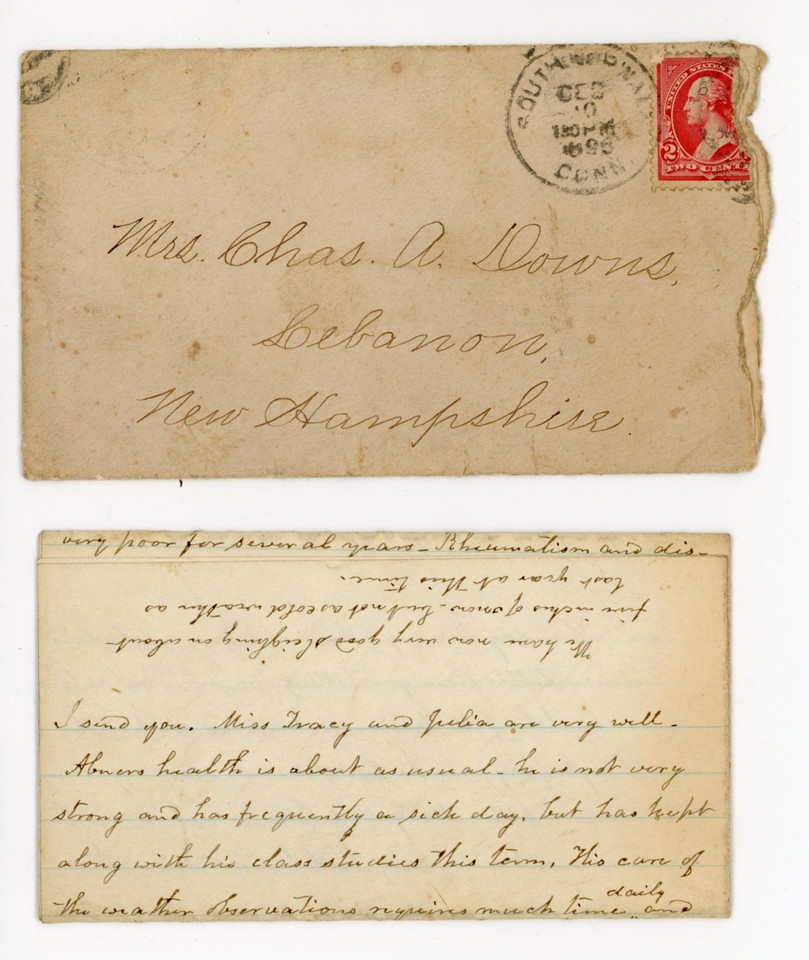 SOUTH NORWALK
DEC
10
CONN.
UNITED STATES
2
TWO CENTS
Mrs. Chas. A. Downs,
Lebanon,
New Hampshire.
very poor for several years - Rheumatism and dis-
We have now very good sleighing on about
five inches of snow - but not as cold weather as
last year at this time.
I send you. Miss Tracy and Julia are very well.
Abners health is about as usual - he is not very
strong and has frequently a sick day, but has kept
along with his class studies this term, His care of
the weather observations requires much time daily, and